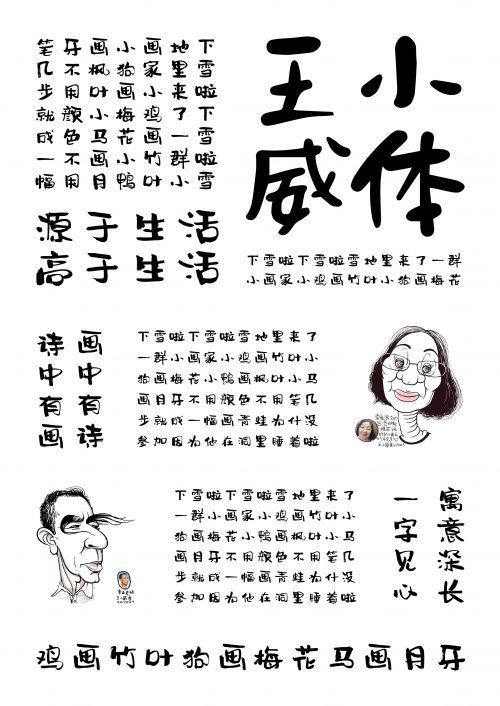 下雪啦下雪啦雪
地里来了一群小
画家小鸡画竹叶
小狗画梅花小鸭
画枫叶小马画月
牙不用颜色不用
笔几步就成一幅
源于生活
高于生活
王小
威体
下雪啦下雪啦雪地里来了一群
小画家小鸡画竹叶小狗画梅花
画中有诗
诗中有画
下雪啦下雪啦雪地里来了
一群小画家小鸡画竹叶小
狗画梅花小鸭画枫叶小马
画月牙不用颜色不用笔几
步就成一幅画青蛙为什没
参加因为他在洞里睡着啦
下雪啦下雪啦雪地里来了
一群小画家小鸡画竹叶小
狗画梅花小鸭画枫叶小马
画月牙不用颜色不用笔几
步就成一幅画青蛙为什没
参加因为他在洞里睡着啦
寓意深长
一字见心
鸡画竹叶狗画梅花马画月牙